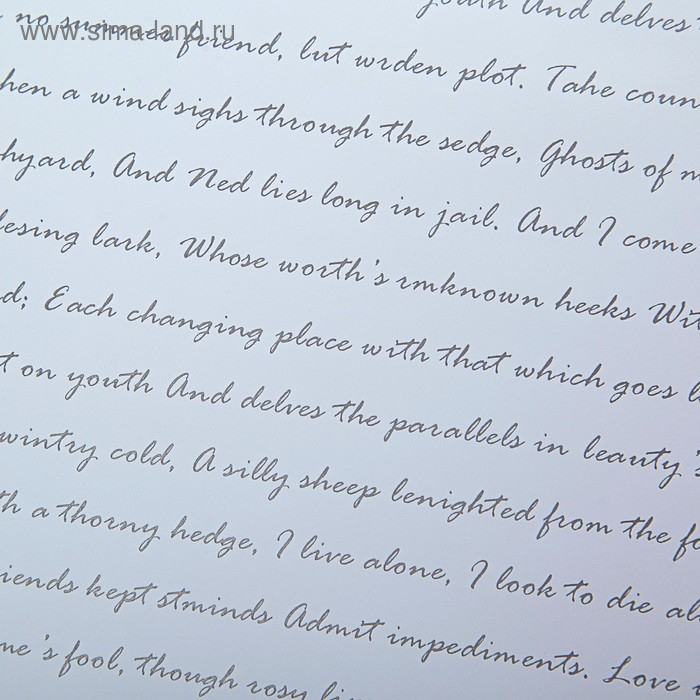 youth And delves
www.sima-land.ru
no summer friend, lut wrden plot. Tahe coun
hen a wind sighs through the sedge, Ghosts of m
hyard, And Ned lies long in jail. And I come
lesing lark, Whose worth's rmknown heeks Wit
d; Each changing place with that which goes l
t on youth And delves the parallels in leauty's
wintry cold, A silly sheep lenighted from the fo
th a thorny hedge, I live alone, I look to die al
iends kept stminds Admit impediments. Love
me's fool, though rosy li